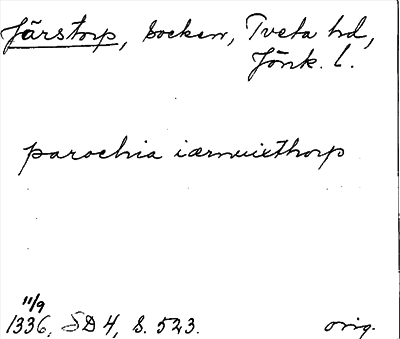 Järstorp, socken, Tveta hd,
Jönk. l.
parochia iærnuixthorp
11/9
1336, SD 4, s. 523. orig.